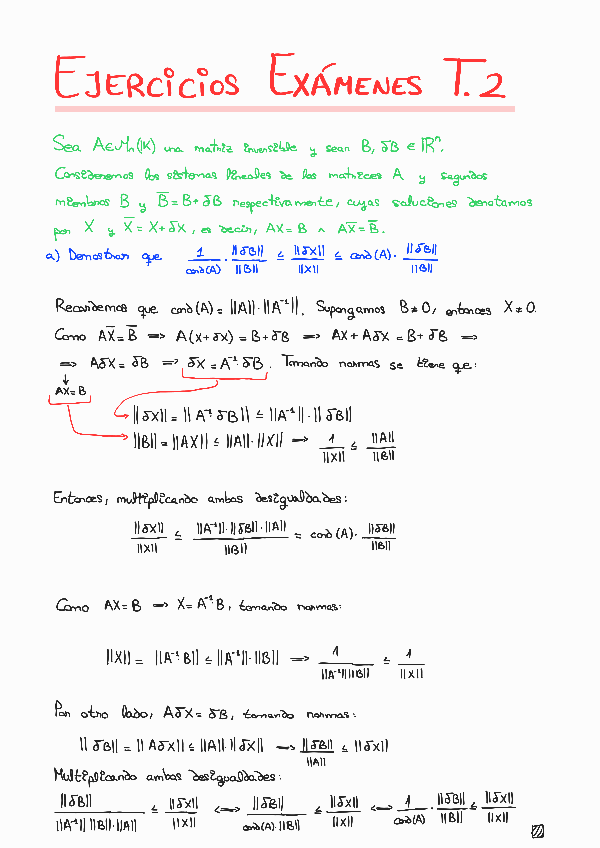 EJERCICIOS EXÁMENES T.2
Sea A∈Mn(IK) una matriz inversible y sean B, δB ∈ IRⁿ.
Consideremos los sistemas lineales de las matrices A y segundos
miembros B y B̅ = B + δB respectivamente, cuyas soluciones denotamos
por X y X̅ = X + δX, es decir, AX = B ∧ AX̅ = B̅.
a) Demostrar que 1/cond(A) · ||δB||/||B|| ≤ ||δX||/||X|| ≤ cond(A) · ||δB||/||B||
Recordemos que cond(A) = ||A||·||A⁻¹||. Supongamos B ≠ 0, entonces X ≠ 0.
Como AX̅ = B̅ ⟹ A(X+δX) = B + δB ⟹ AX + AδX = B + δB ⟹
⟹ AδX = δB ⟹ δX = A⁻¹ δB. Tomando normas se tiene que:
↓
AX = B
||δX|| = ||A⁻¹ δB|| ≤ ||A⁻¹||·||δB||
||B|| = ||AX|| ≤ ||A||·||X|| ⟹ 1/||X|| ≤ ||A||/||B||
Entonces, multiplicando ambas desigualdades:
||δX||/||X|| ≤ ||A⁻¹||·||δB||·||A||/||B|| = cond(A)· ||δB||/||B||
Como AX = B ⟹ X = A⁻¹B, tomando normas:
||X|| = ||A⁻¹B|| ≤ ||A⁻¹||·||B|| ⟹ 1/||A⁻¹||||B|| ≤ 1/||X||
Por otro lado, AδX = δB, tomando normas:
||δB|| = ||AδX|| ≤ ||A||·||δX|| ⟹ ||δB||/||A|| ≤ ||δX||
Multiplicando ambas desigualdades:
||δB||/||A⁻¹||·||B||·||A|| ≤ ||δX||/||X|| ⟺ ||δB||/cond(A)·||B|| ≤ ||δX||/||X|| ⟺ 1/cond(A) · ||δB||/||B|| ≤ ||δX||/||X||